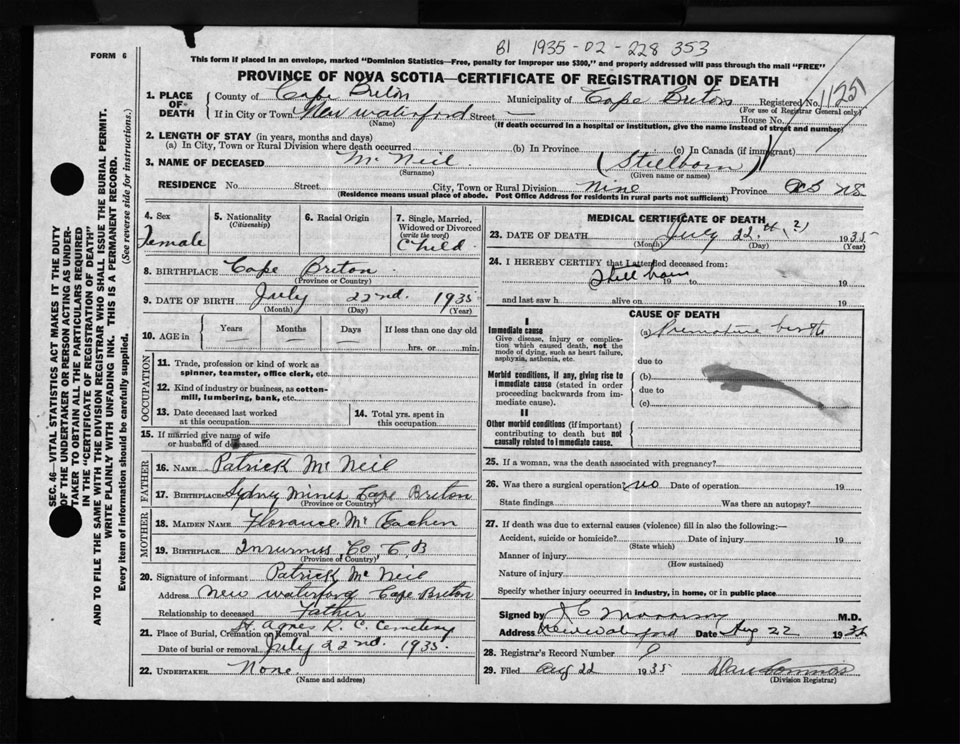 B1 1935-02-228 353
FORM 6
This form if placed in an envelope, marked "Dominion Statistics—Free, penalty for improper use $300," and properly addressed will pass through the mail "FREE"
PROVINCE OF NOVA SCOTIA—CERTIFICATE OF REGISTRATION OF DEATH
1. PLACE OF DEATH
County of Cape Breton Municipality of Cape Breton Registered No. 11251
(For use of Registrar General only)
If in City or Town New Waterford Street House No.
(Name) (If death occurred in a hospital or institution, give the name instead of street and number)
2. LENGTH OF STAY (in years, months and days)
(a) In City, Town or Rural Division where death occurred (b) In Province (c) In Canada (if immigrant)
3. NAME OF DECEASED McNeil (Stillborn)
(Surname) (Given name or names)
RESIDENCE No. Street City, Town or Rural Division Nine Province NS
(Residence means usual place of abode. Post Office Address for residents in rural parts not sufficient)
4. Sex
Female
5. Nationality
(Citizenship)
6. Racial Origin
7. Single, Married, Widowed or Divorced
(write the word)
Child
8. BIRTHPLACE Cape Breton
(Province or Country)
9. DATE OF BIRTH July 22nd. 1935
(Month) (Day) (Year)
10. AGE in
Years Months Days If less than one day old
hrs. or min.
OCCUPATION
11. Trade, profession or kind of work as spinner, teamster, office clerk, etc.
12. Kind of industry or business, as cotton-mill, lumbering, bank, etc.
13. Date deceased last worked at this occupation
14. Total yrs. spent in this occupation
15. If married give name of wife or husband of deceased
FATHER
16. NAME Patrick McNeil
17. BIRTHPLACE Sydney Mines Cape Breton
(Province or Country)
MOTHER
18. MAIDEN NAME Florance McEachen
19. BIRTHPLACE Inverness Co C B
(Province or Country)
20. Signature of informant Patrick McNeil
Address New Waterford Cape Breton
Relationship to deceased Father
21. Place of Burial, Cremation or Removal St. Agnes R. C. Cemetery
Date of burial or removal July 22nd. 1935.
22. UNDERTAKER None.
(Name and address)
MEDICAL CERTIFICATE OF DEATH
23. DATE OF DEATH July 22nd (?) 1935
(Month) (Day) (Year)
24. I HEREBY CERTIFY that I attended deceased from:
Stillborn 19 to 19
and last saw h alive on 19
CAUSE OF DEATH
I
Immediate cause
Give disease, injury or complication which caused death, not the mode of dying, such as heart failure, asphyxia, asthenia, etc.
(a) Premature birth
due to
Morbid conditions, if any, giving rise to immediate cause (stated in order proceeding backwards from immediate cause).
(b)
due to
(c)
II
Other morbid conditions (if important) contributing to death but not causally related to immediate cause.
25. If a woman, was the death associated with pregnancy?
26. Was there a surgical operation? no Date of operation 19
State findings Was there an autopsy?
27. If death was due to external causes (violence) fill in also the following:—
Accident, suicide or homicide? Date of injury 19
(State which)
Manner of injury
(How sustained)
Nature of injury
Specify whether injury occurred in industry, in home, or in public place
Signed by J C Morrison M.D.
Address New Waterford Date Aug 22 1935
28. Registrar's Record Number 9
29. Filed Aug 22 1935
(Division Registrar)
SEC. 46—VITAL STATISTICS ACT MAKES IT THE DUTY
OF THE UNDERTAKER OR PERSON ACTING AS UNDER-
TAKER TO OBTAIN ALL THE PARTICULARS REQUIRED
IN THE "CERTIFICATE OF REGISTRATION OF DEATH"
AND TO FILE THE SAME WITH THE DIVISION REGISTRAR WHO SHALL ISSUE THE BURIAL PERMIT.
WRITE PLAINLY WITH UNFADING INK. THIS IS A PERMANENT RECORD.
Every item of information should be carefully supplied. (See reverse side for instructions.)